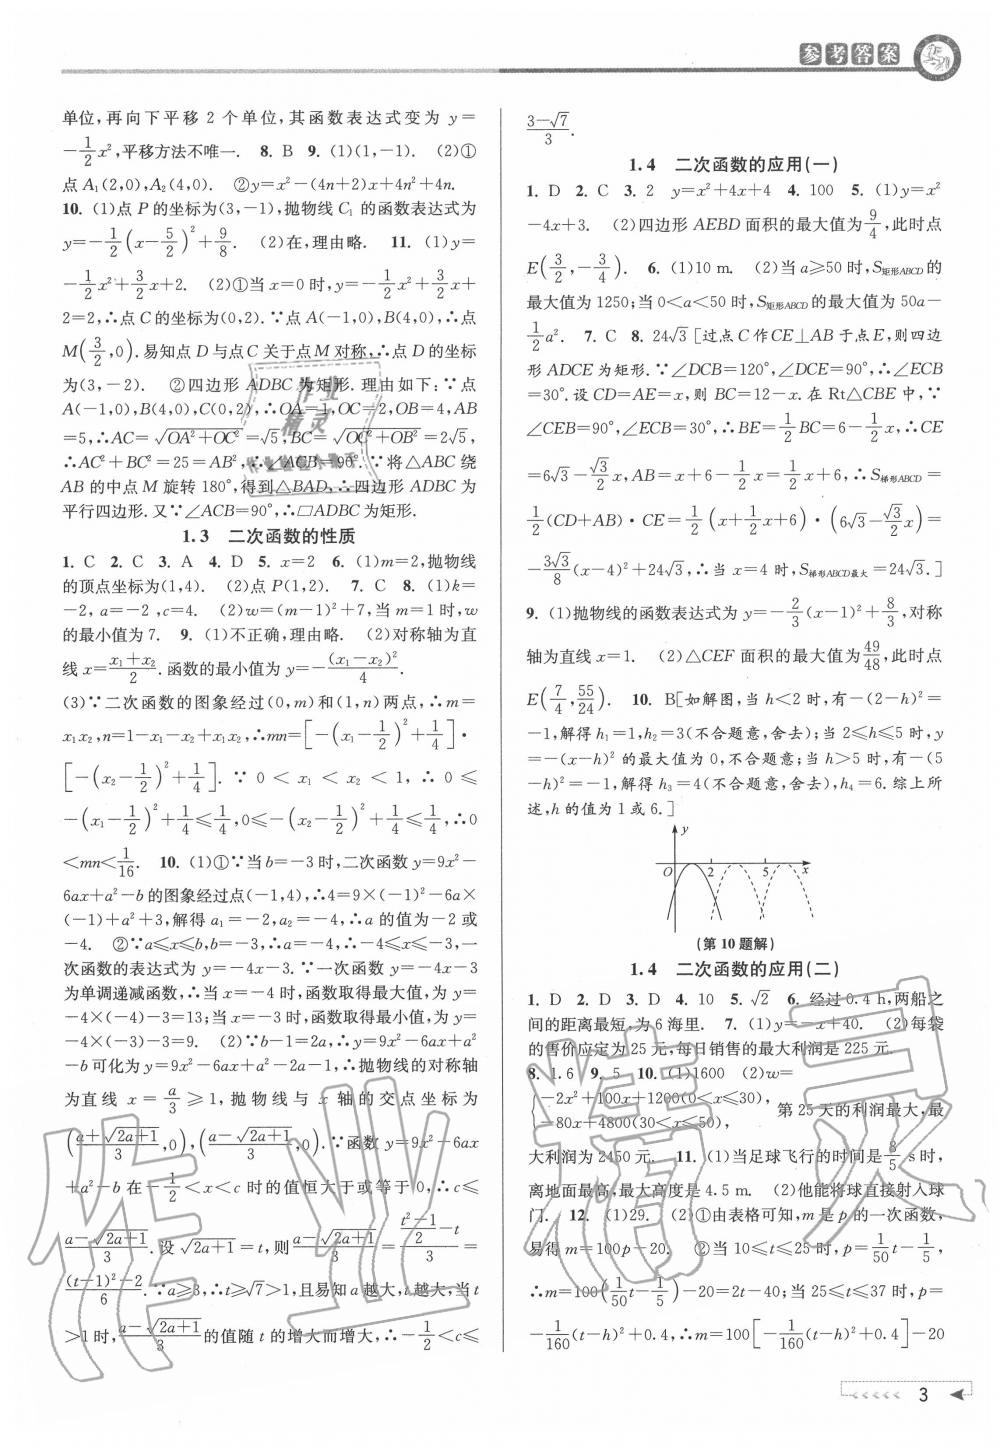 参考答案
单位,再向下平移 2 个单位,其函数表达式变为 y=
-1/2x²,平移方法不唯一. 8. B 9. (1)(1,-1). (2)①
点A₁(2,0),A₂(4,0). ②y=x²-(4n+2)x+4n²+4n.
10. (1)点 P 的坐标为(3,-1),抛物线 C₁ 的函数表达式为
y=-1/2(x-5/2)²+9/8. (2)在,理由略. 11. (1)y=
-1/2x²+3/2x+2. (2)①当 x=0 时,y=-1/2x²+3/2x+
2=2,∴点 C 的坐标为(0,2).∵点 A(-1,0),B(4,0),∴点
M(3/2,0).易知点 D 与点 C 关于点 M 对称,∴点 D 的坐标
为(3,-2). ②四边形 ADBC 为矩形.理由如下:∵点
A(-1,0),B(4,0),C(0,2),∴OA=1,OC=2,OB=4,AB
=5,∴AC=√(OA²+OC²)=√5,BC=√(OC²+OB²)=2√5,
∴AC²+BC²=25=AB²,∴∠ACB=90°.∵将△ABC 绕
AB 的中点 M 旋转 180°,得到△BAD,∴四边形 ADBC 为
平行四边形.又∵∠ACB=90°,∴□ADBC 为矩形.
1.3 二次函数的性质
1. C 2. C 3. A 4. D 5. x=2 6. (1)m=2,抛物线
的顶点坐标为(1,4). (2)点 P(1,2). 7. C 8. (1)k=
-2,a=-2,c=4. (2)w=(m-1)²+7,当 m=1 时,w
的最小值为 7. 9. (1)不正确,理由略. (2)对称轴为直
线 x=(x₁+x₂)/2.函数的最小值为 y=-(x₁-x₂)²/4.
(3)∵二次函数的图象经过(0,m)和(1,n)两点,∴m=
x₁x₂,n=1-x₁-x₂+x₁x₂,∴mn=[-(x₁-1/2)²+1/4]·
[-(x₂-1/2)²+1/4].∵0<x₁<x₂<1,∴0≤
-(x₁-1/2)²+1/4≤1/4,0≤-(x₂-1/2)²+1/4≤1/4,∴0
<mn<1/16. 10. (1)①∵当 b=-3 时,二次函数 y=9x²-
6ax+a²-b 的图象经过点(-1,4),∴4=9×(-1)²-6a×
(-1)+a²+3,解得 a₁=-2,a₂=-4,∴a 的值为-2 或
-4. ②∵a≤x≤b,b=-3,∴a=-4,∴-4≤x≤-3,一
次函数的表达式为 y=-4x-3.∵一次函数 y=-4x-3
为单调递减函数,∴当 x=-4 时,函数取得最大值,为 y=
-4×(-4)-3=13;当 x=-3 时,函数取得最小值,为 y=
-4×(-3)-3=9. (2)∵b-1=2a,∴y=9x²-6ax+a²
-b 可化为 y=9x²-6ax+a²-2a-1,∴抛物线的对称轴
为直线 x=a/3≥1,抛物线与 x 轴的交点坐标为
((a+√(2a+1))/3,0),((a-√(2a+1))/3,0).∵函数 y=9x²-6ax
+a²-b 在-1/2<x<c 时的值恒大于或等于 0,∴c≤
(a-√(2a+1))/3.设√(2a+1)=t,则(a-√(2a+1))/3=((t²-1)/2-t)/3=
((t-1)²-2)/6.∵a≥3,∴t≥√7>1,且易知 a 越大,t 越大,当 t
>1时,(a-√(2a+1))/3的值随 t 的增大而增大,∴-1/2<c≤
(3-√7)/3.
1.4 二次函数的应用(一)
1. D 2. C 3. 2 y=x²+4x+4 4. 100 5. (1)y=x²
-4x+3. (2)四边形 AEBD 面积的最大值为9/4,此时点
E(3/2,-3/4). 6. (1)10 m. (2)当 a≥50 时,S矩形ABCD的
最大值为 1250;当 0<a<50 时,S矩形ABCD的最大值为 50a-
1/2a². 7. C 8. 24√3 [过点 C 作 CE⊥AB 于点 E,则四边
形 ADCE 为矩形.∵∠DCB=120°,∠DCE=90°,∴∠ECB
=30°.设 CD=AE=x,则 BC=12-x.在 Rt△CBE 中,∵
∠CEB=90°,∠ECB=30°,∴BE=1/2BC=6-1/2x,∴CE
=6√3-√3/2x,AB=x+6-1/2x=1/2x+6,∴S梯形ABCD=
1/2(CD+AB)·CE=1/2(x+1/2x+6)·(6√3-√3/2x)=
-3√3/8(x-4)²+24√3,∴当 x=4 时,S梯形ABCD最大=24√3.]
9. (1)抛物线的函数表达式为 y=-2/3(x-1)²+8/3,对称
轴为直线 x=1. (2)△CEF 面积的最大值为49/48,此时点
E(7/4,55/24). 10. B[如解图,当 h<2 时,有-(2-h)²=
-1,解得 h₁=1,h₂=3(不合题意,舍去);当 2≤h≤5 时,y
=-(x-h)² 的最大值为 0,不合题意;当 h>5 时,有-(5
-h)²=-1,解得 h₃=4(不合题意,舍去),h₄=6.综上所
述,h 的值为 1 或 6.]
y
O 2 5 x
(第 10 题解)
1.4 二次函数的应用(二)
1. D 2. D 3. D 4. 10 5. √2 6. 经过 0.4 h,两船之
间的距离最短,为 6 海里. 7. (1)y=-x+40. (2)每袋
的售价应定为 25 元,每日销售的最大利润是 225 元.
8. 1.6 9. 5 10. (1)1600 (2)w=
{-2x²+100x+1200(0<x≤30),
-80x+4800(30<x≤50), 第 25 天的利润最大,最
大利润为 2450 元. 11. (1)当足球飞行的时间是8/5 s 时,
离地面最高,最大高度是 4.5 m. (2)他能将球直接射入球
门. 12. (1)29. (2)①由表格可知,m 是 p 的一次函数,
易得 m=100p-20. ②当 10≤t≤25 时,p=1/50t-1/5,
∴m=100(1/50t-1/5)-20=2t-40;当 25≤t≤37 时,p=
-1/160(t-h)²+0.4,∴m=100[-1/160(t-h)²+0.4]-20
3
作业精灵